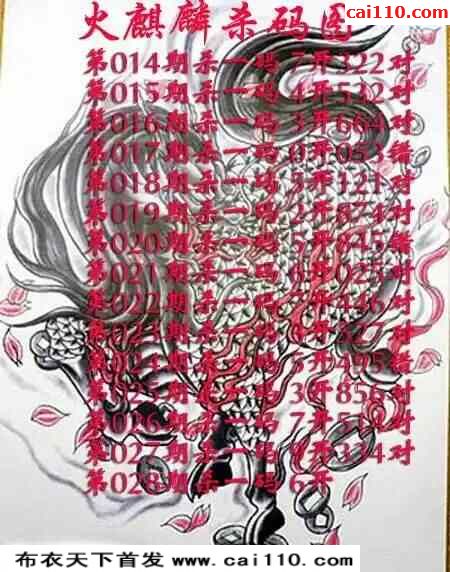 cai110.com
火麒麟杀码图
第014期杀一码 7开322对
第015期杀一码 4开532对
第016期杀一码 3开664对
第017期杀一码 0开053错
第018期杀一码 开121对
第019期杀一码 2开874对
第020期杀一码 5开845错
第021期杀一码 开025对
第022期杀一码 开446对
第023期杀一码 开527
第024期杀一码 5开495错
第025期杀一码 3开856对
第026期杀一码 7开 对
第027期杀一码 9开334对
第028期杀一码 6开
布衣天下首发 www.cai110.com